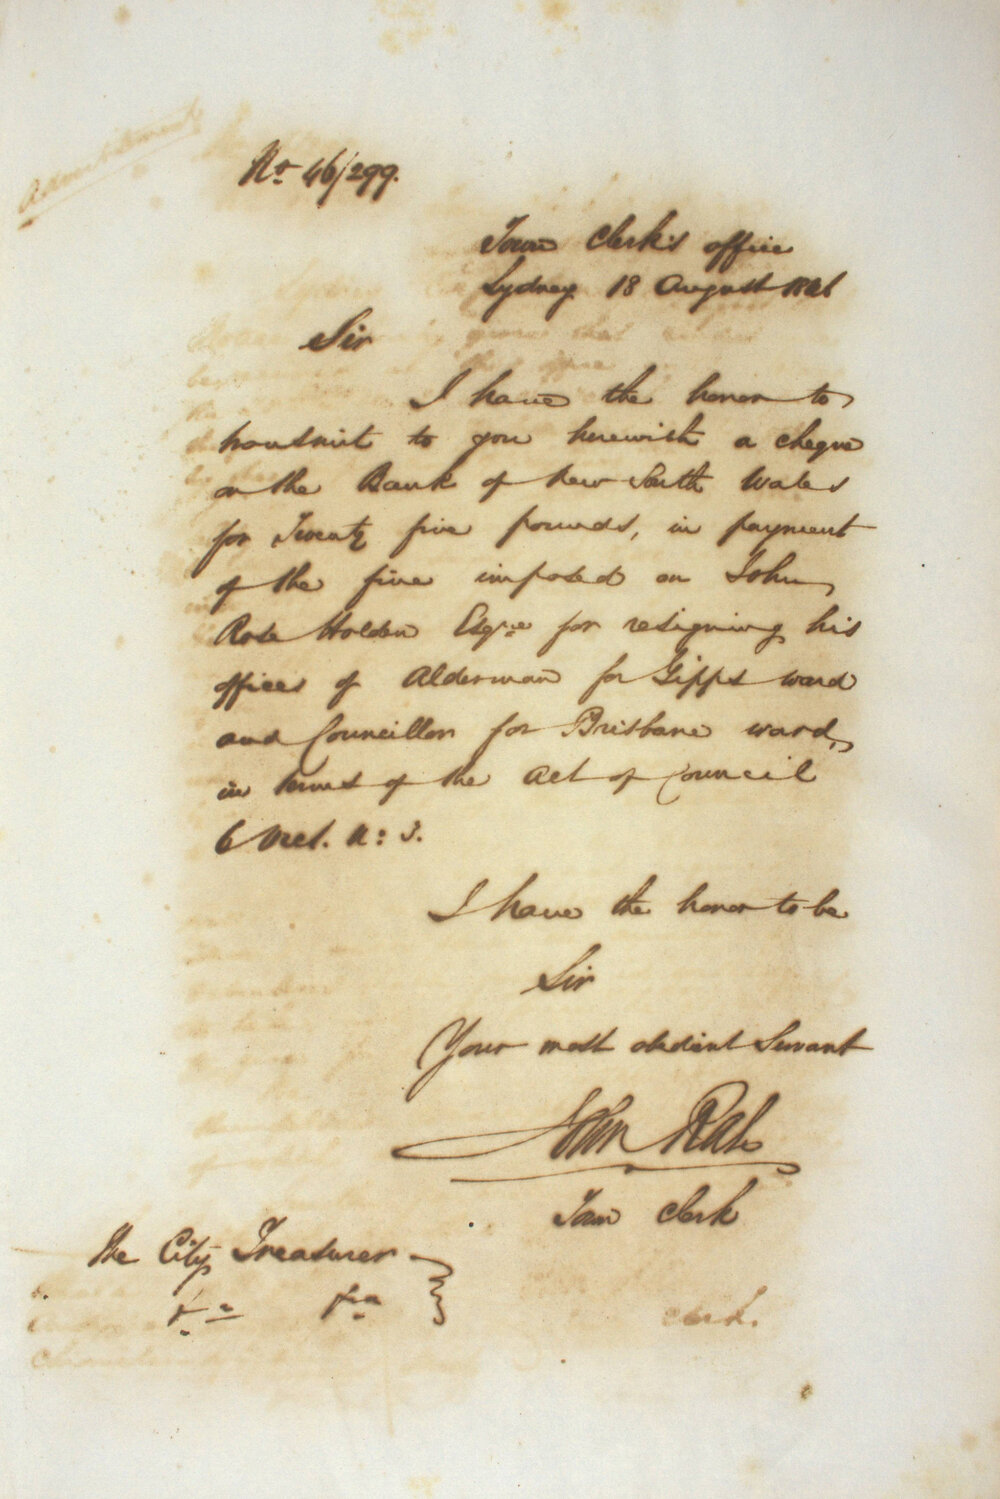 No 46/299.
Town Clerk's office
Sydney 18 August 1846
Sir
I have the honor to
transmit to you herewith a cheque
on the Bank of New South Wales
for Twenty five pounds, in payment
of the fine imposed on John
Rose Holden Esqre for resigning his
offices of Alderman for Gipps ward
and Councillor for Brisbane ward,
in terms of the Act of Council
6 Vict. N: 3.
I have the honor to be
Sir
Your most obedient Servant
John Rae
Town Clerk
The City Treasurer
&c &c